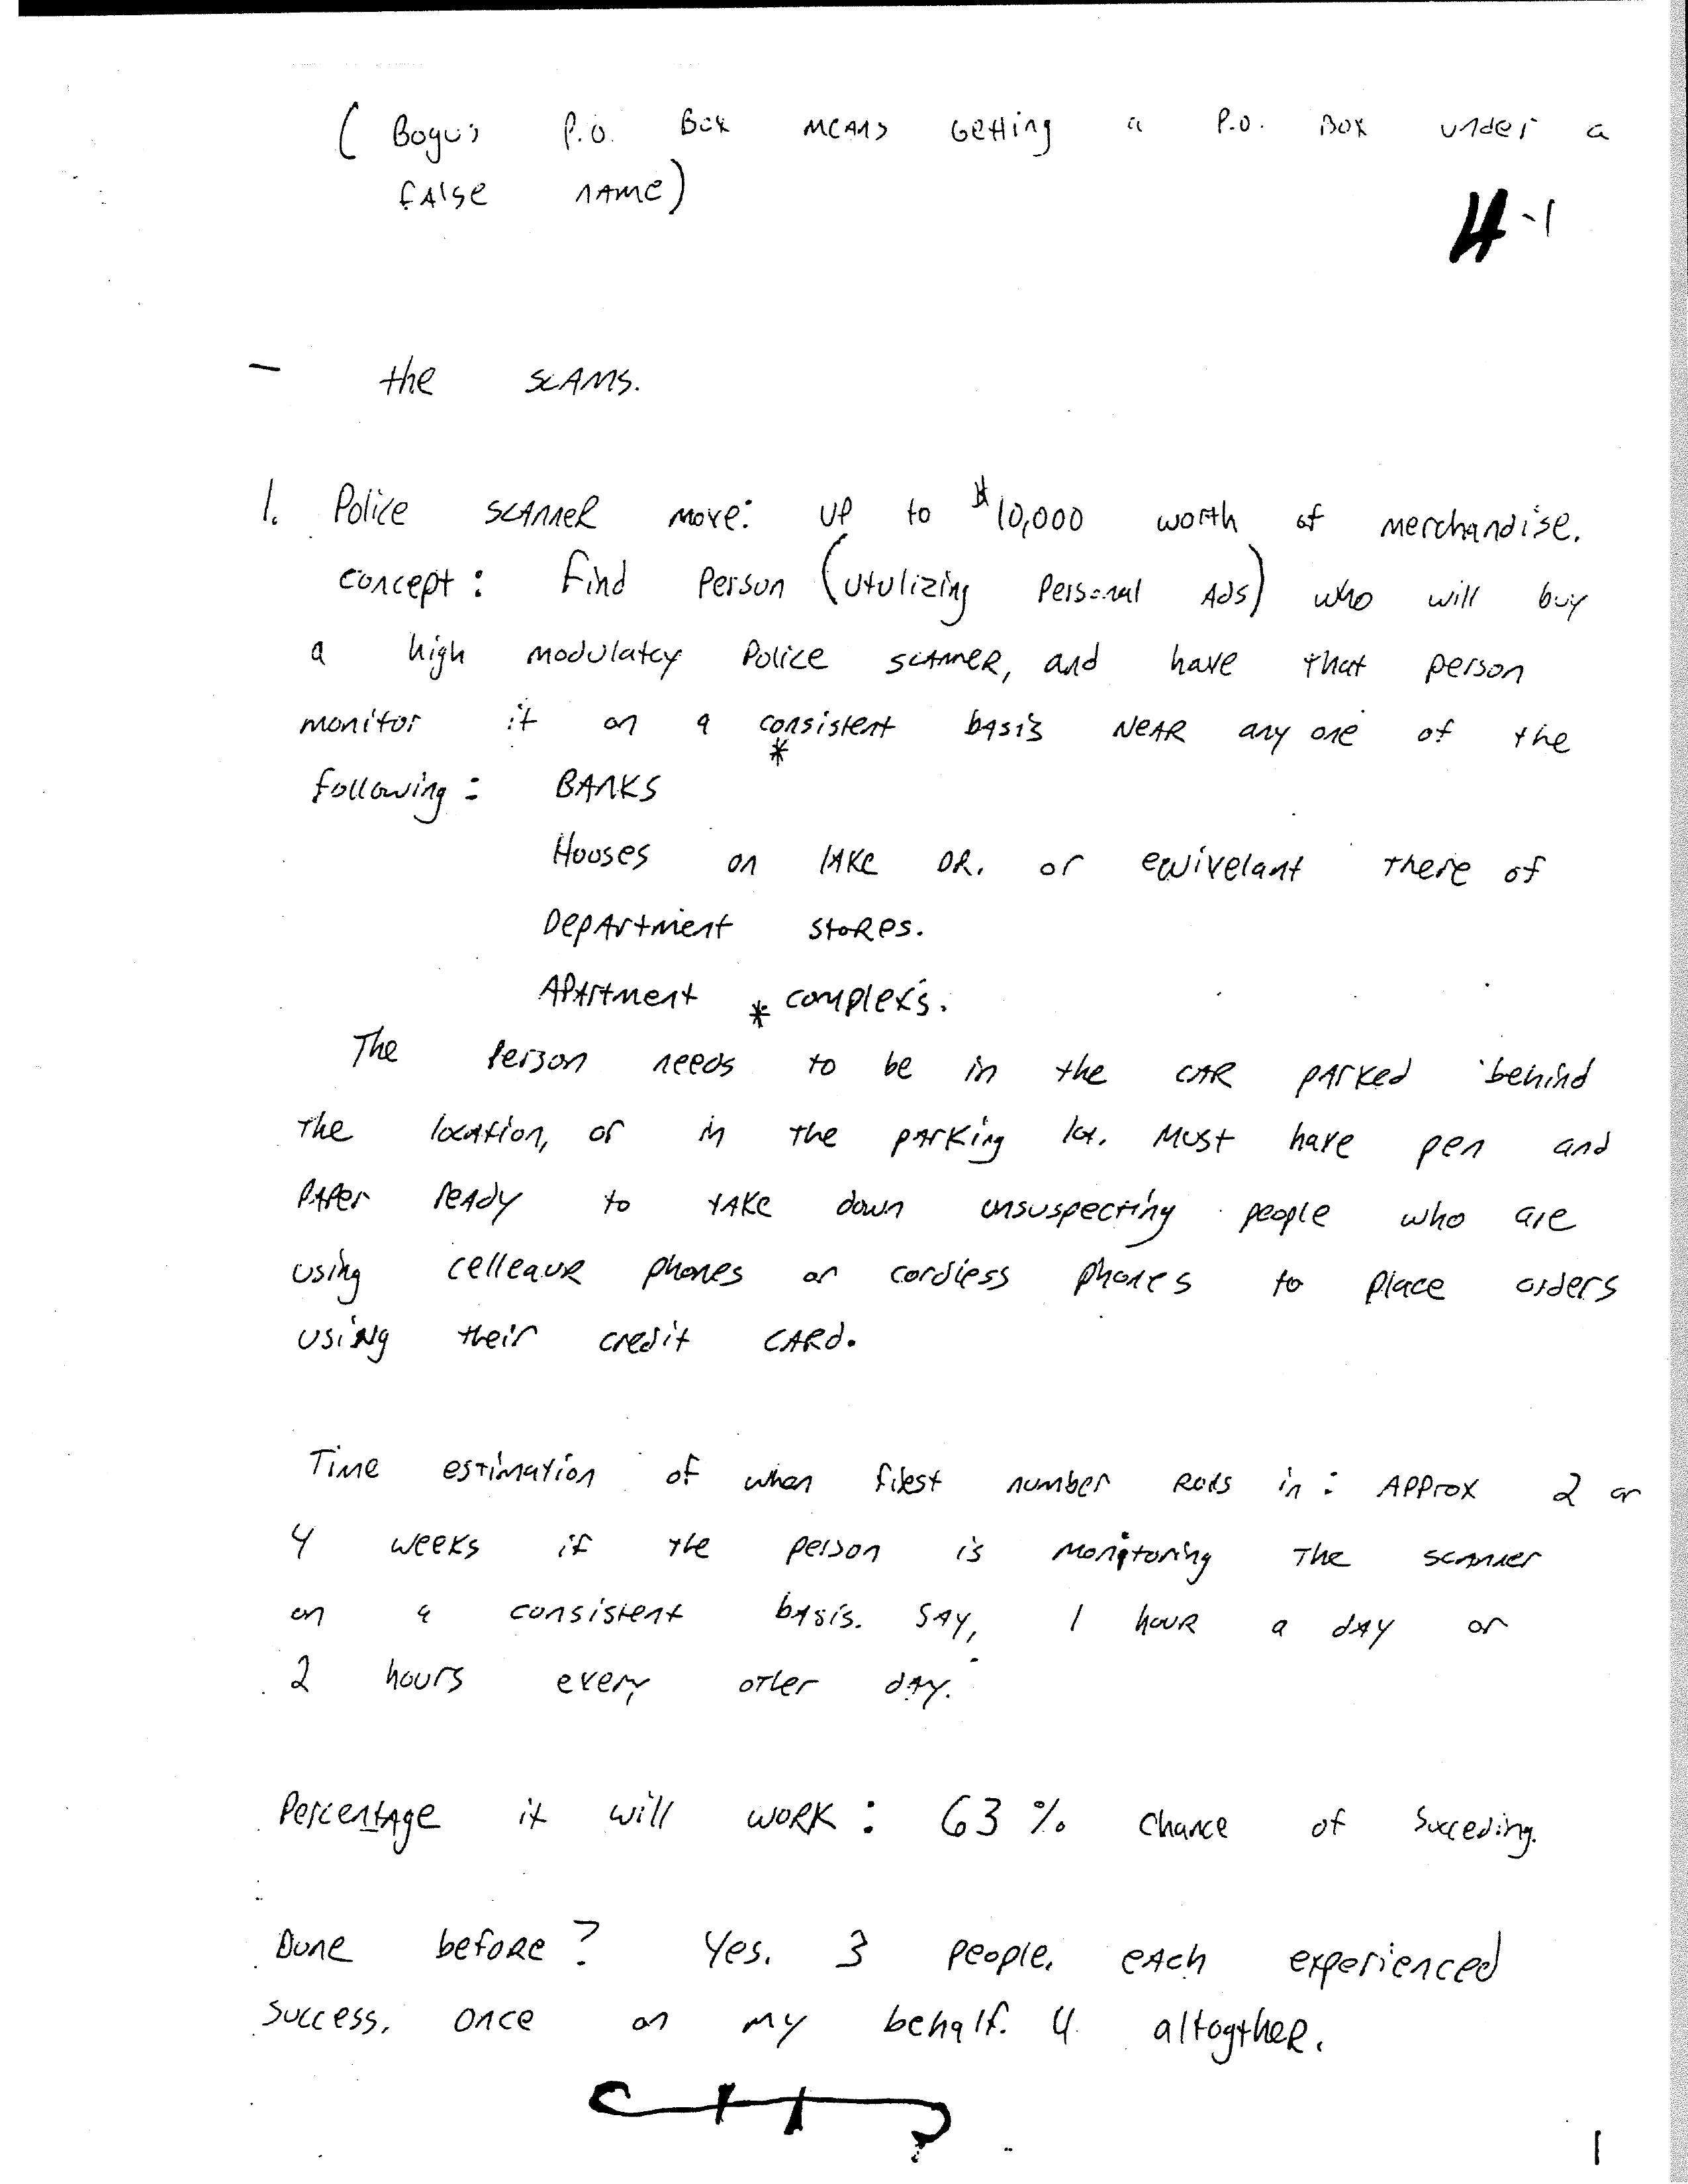 ( Bogus P.O. Box MEANS Getting a P.O. Box under a
false name)
4-1
— the SCAMS.
1. Police SCANNER move: up to $10,000 worth of merchandise.
concept: find Person (utulizing Personal Ads) who will buy
a high modulatcy Police SCANNER, and have that person
monitor it on a consistent basis NEAR any one of the
*
following: BANKS
Houses on lAKE DR. or eqivelant there of
DepArtment stoRes.
APArtment * complex's.
The Person needs to be in the CAR parked behind
the location, or in the parking lot. Must have pen and
PAPer reAdy to tAKe down unsuspecting people who are
using celleauR phones or cordless phones to place orders
using their credit CARd.
Time estimation of when first number Rolls in: Approx 2 or
4 weeks if the person is monitoring The scanner
on a consistent basis. SAY, 1 houR a dAY or
2 hours every other dAY.
Percentage it will woRK: 63% Chance of Succeding.
Done befoRe? Yes. 3 people. eAch experienced
success. once on my behalf. 4 altogtheR.
1